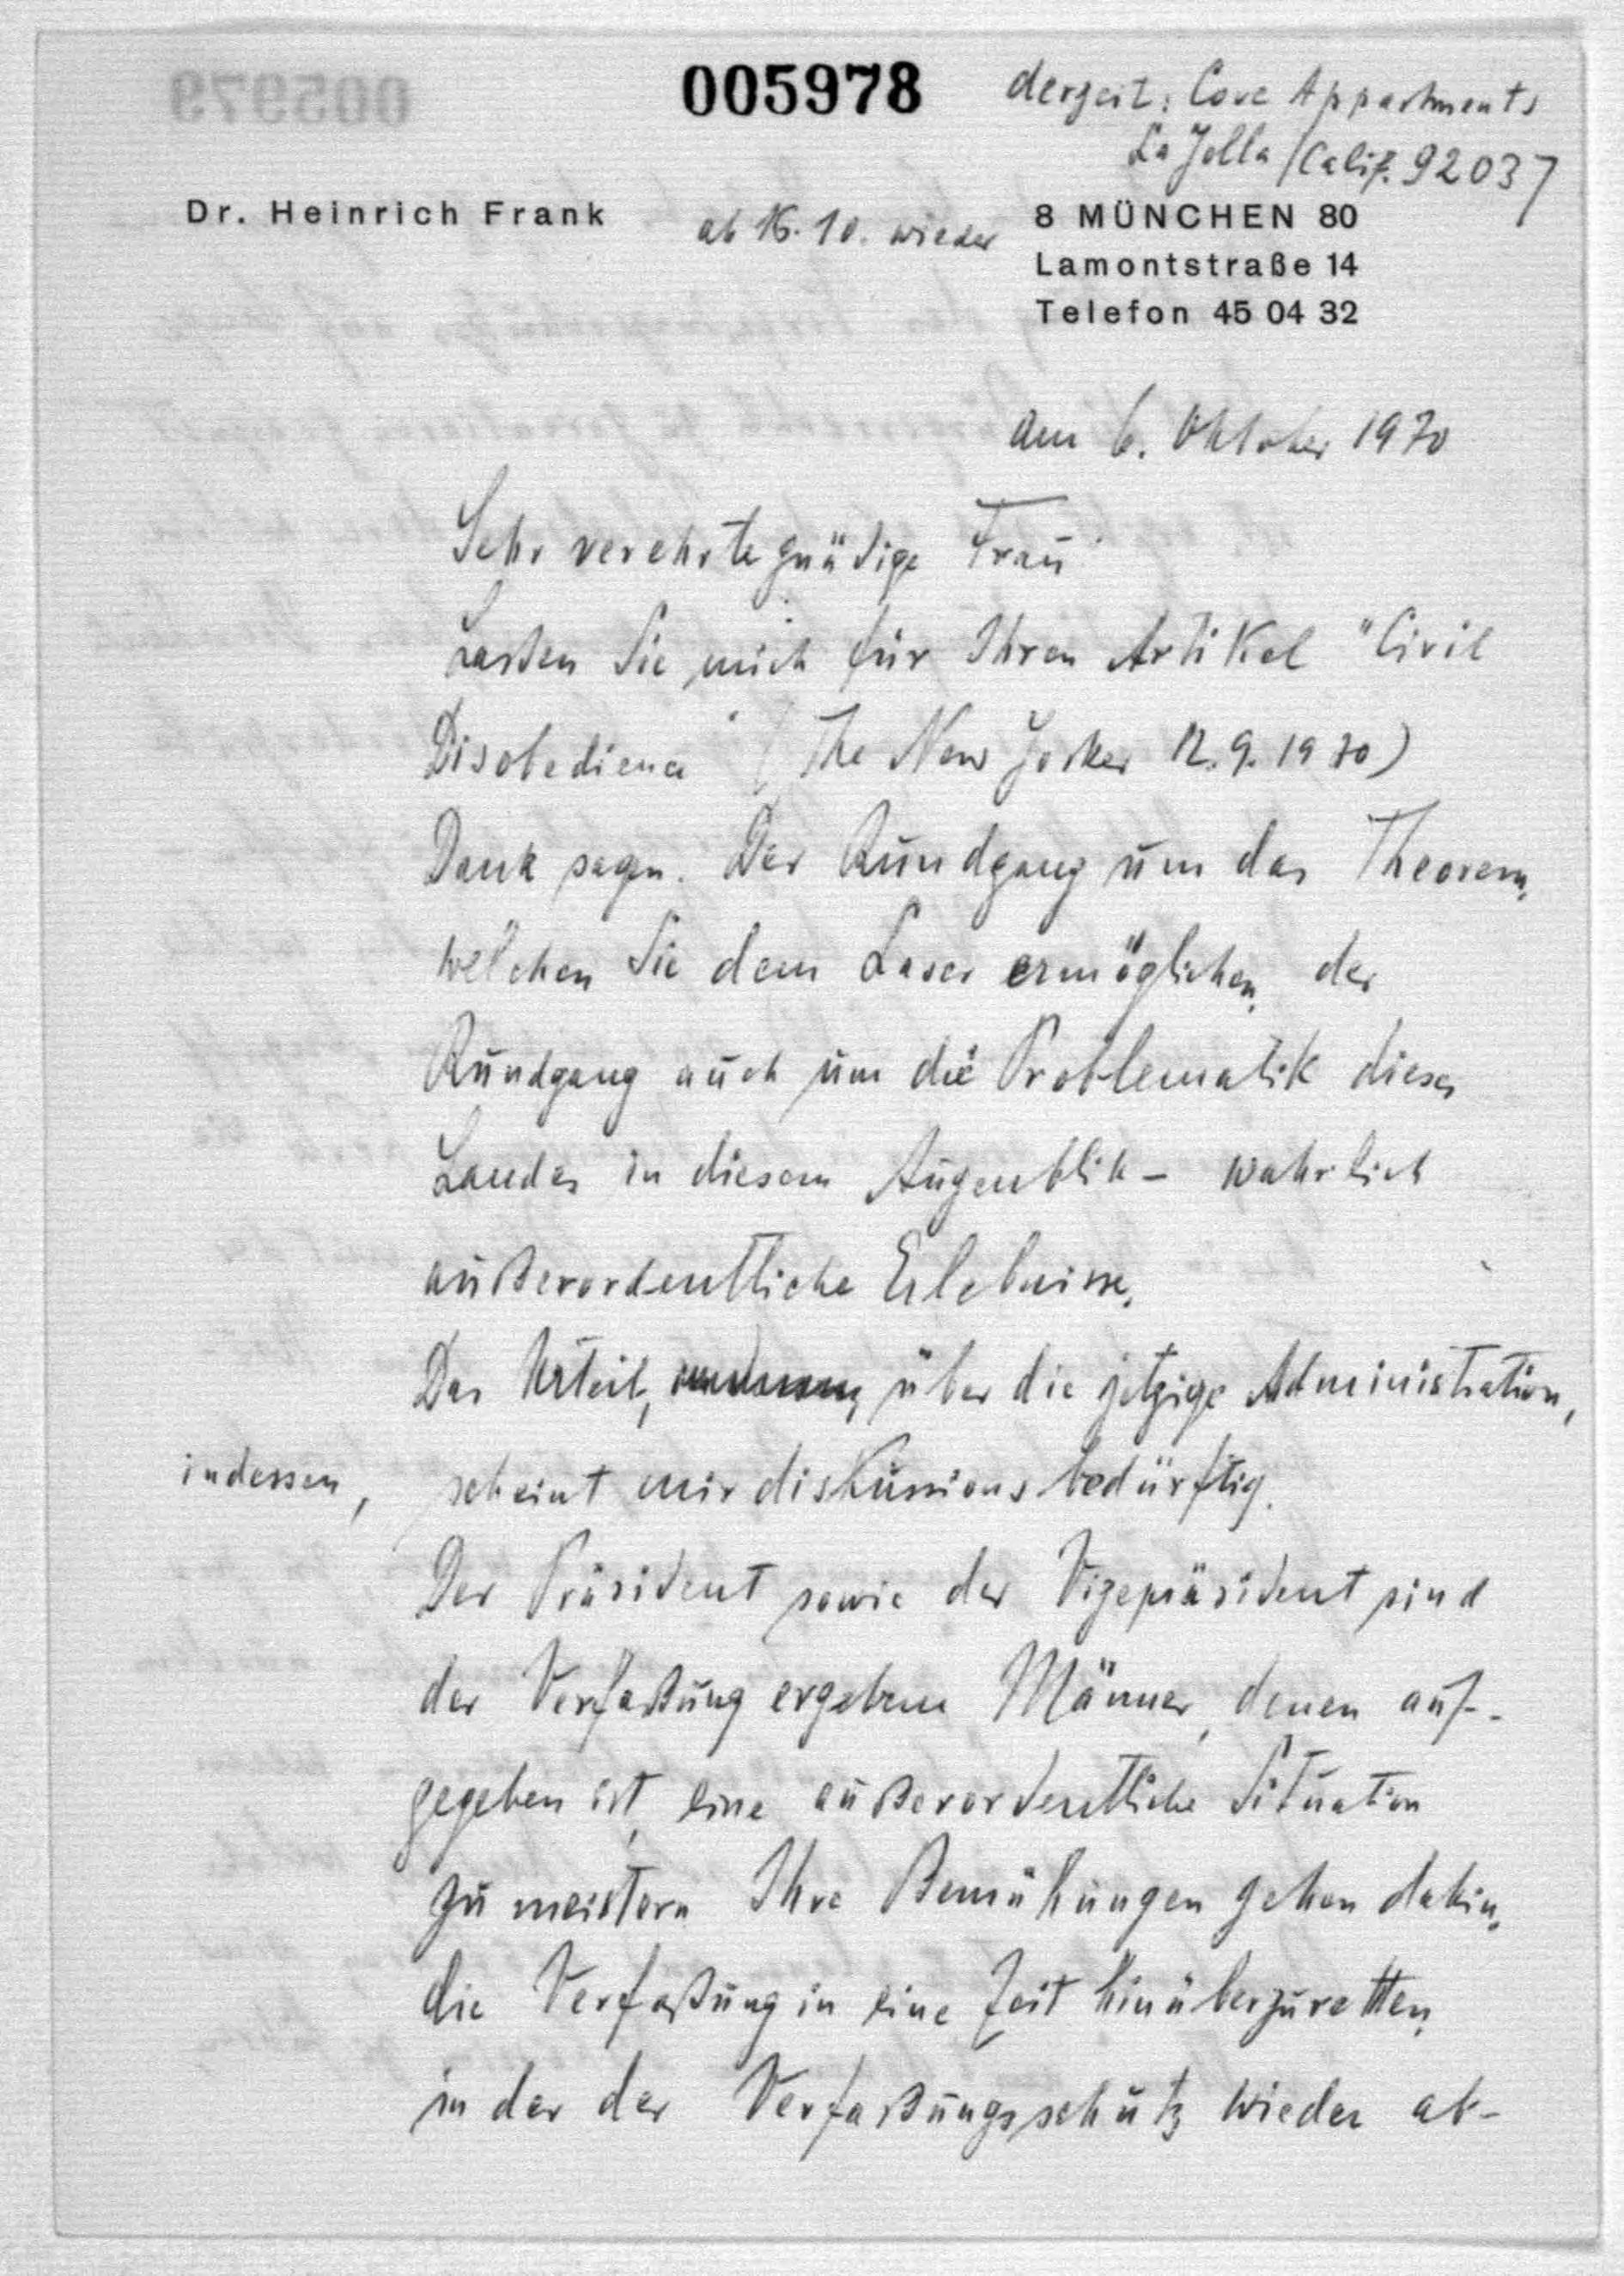 005978
derzeit: Cove Appartments
La Jolla/Calif. 92037
Dr. Heinrich Frank
ab 16.10. wieder
8 MÜNCHEN 80
Lamontstraße 14
Telefon 45 04 32
den 6. Oktober 1970
Sehr verehrte gnädige Frau
Laßen Sie mich für Ihren Artikel "Civil
Disobedience" (The New Yorker 12.9.1970)
Dank sagen. Der Rundgang um das Theorem,
welchen Sie dem Leser ermöglichen, der
Rundgang auch um die Problematik dieses
Landes in diesem Augenblik - wahrlich
außerordentliche Erlebnisse.
Das Urteil, über die jetzige Administration,
indessen, scheint mir diskussionsbedürftig.
Der Präsident sowie der Vizepräsident sind
der Verfaßung ergebene Männer, denen auf-
gegeben ist, eine außerordentliche Situation
zu meistern. Ihre Bemühungen gehen dahin,
die Verfaßung in eine Zeit hinüberzuretten,
in der der Verfaßungsschutz wieder ab-
005979